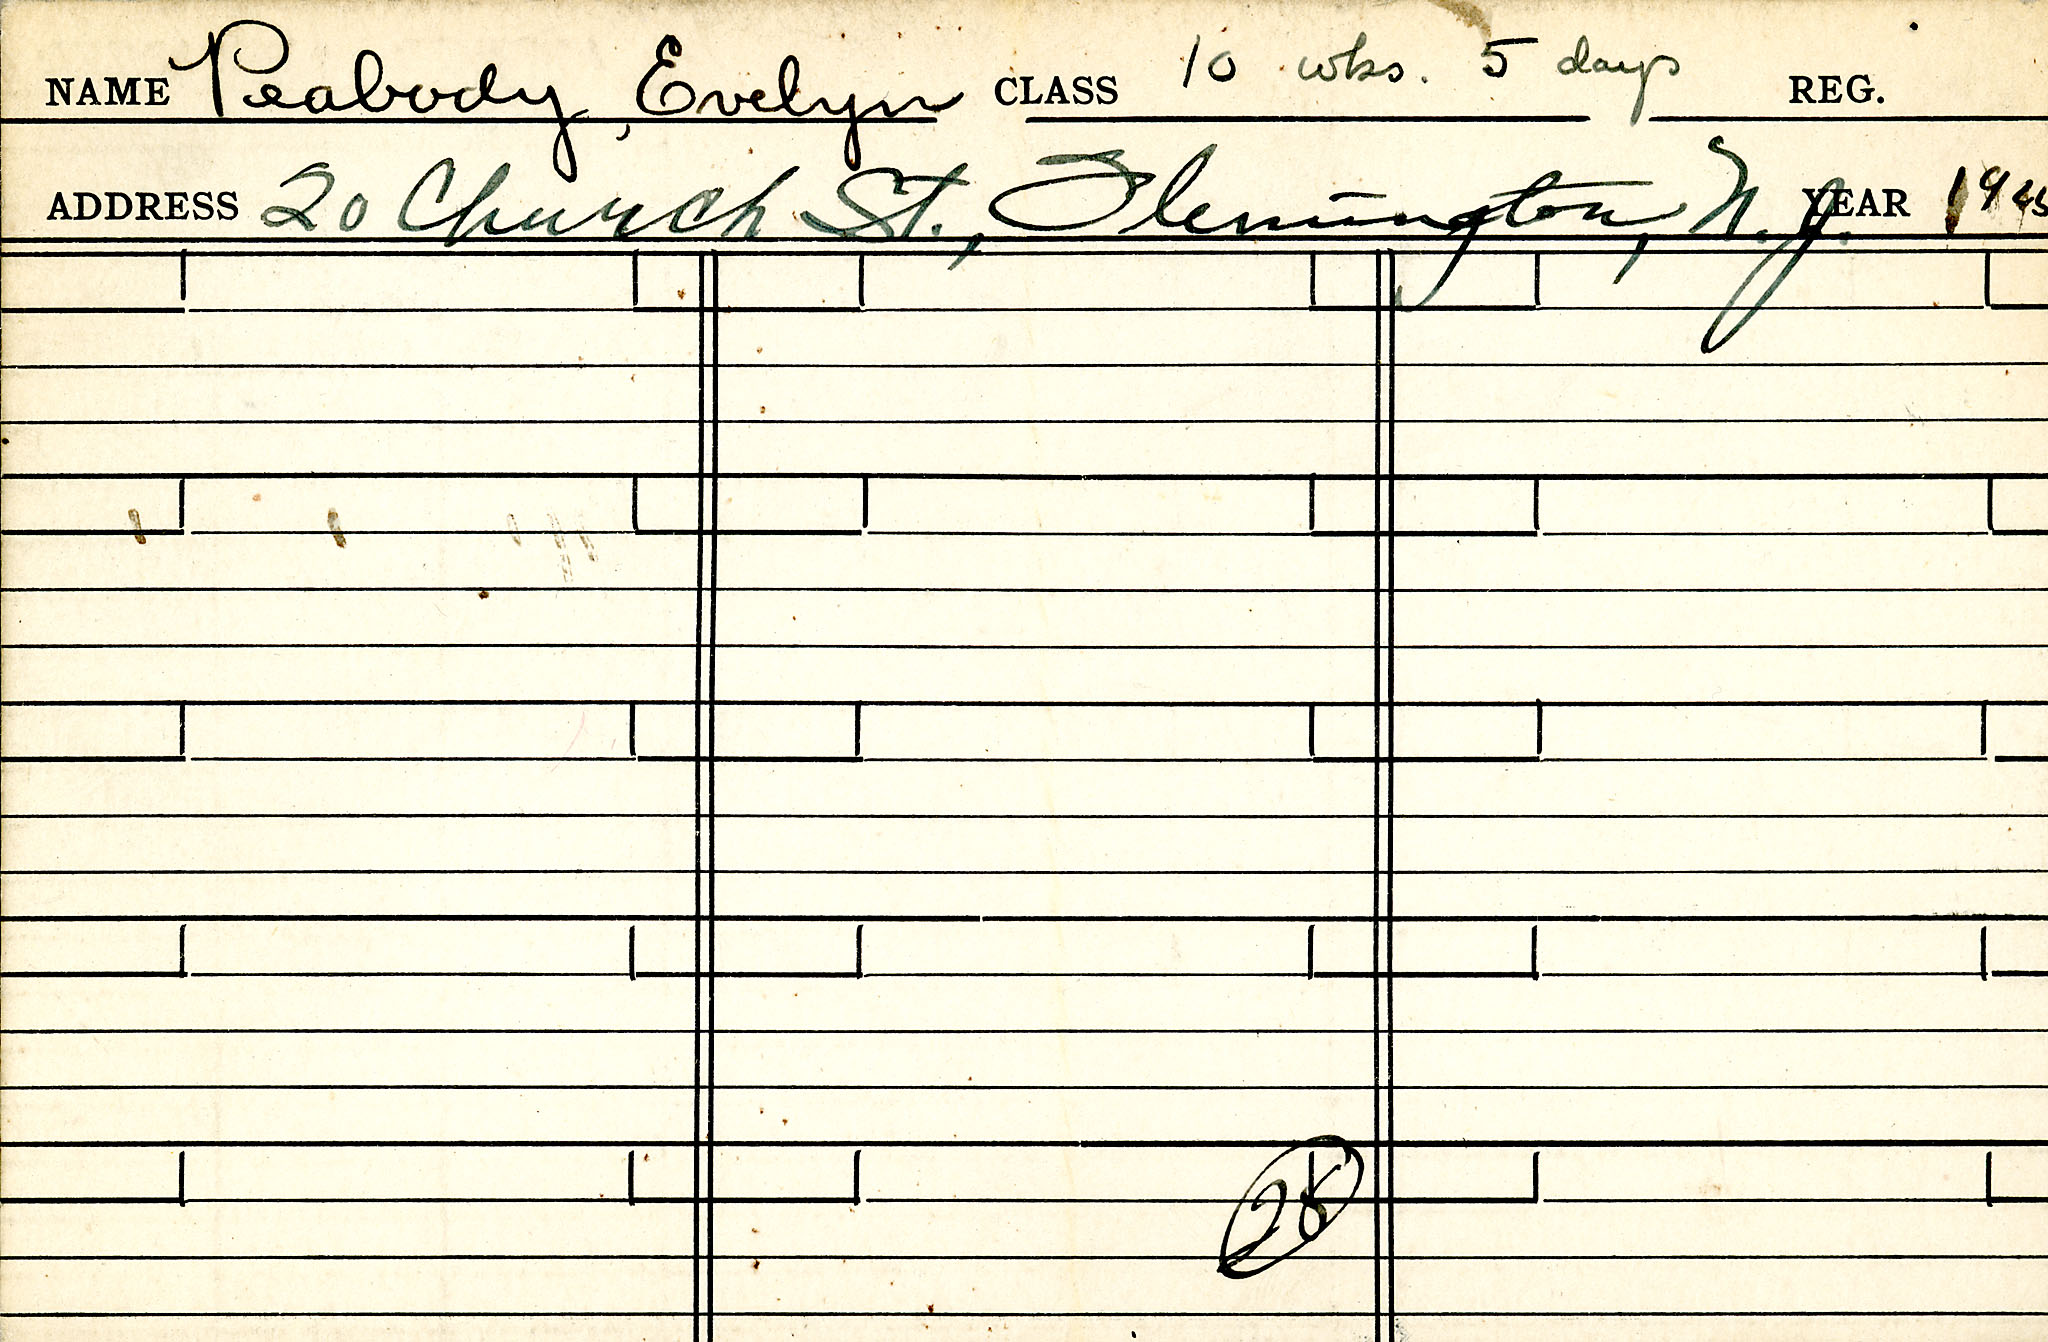 NAME Peabody, Evelyn CLASS 10 wks. 5 days REG.
ADDRESS 20 Church St., Flemington, N. J. YEAR 1925
28